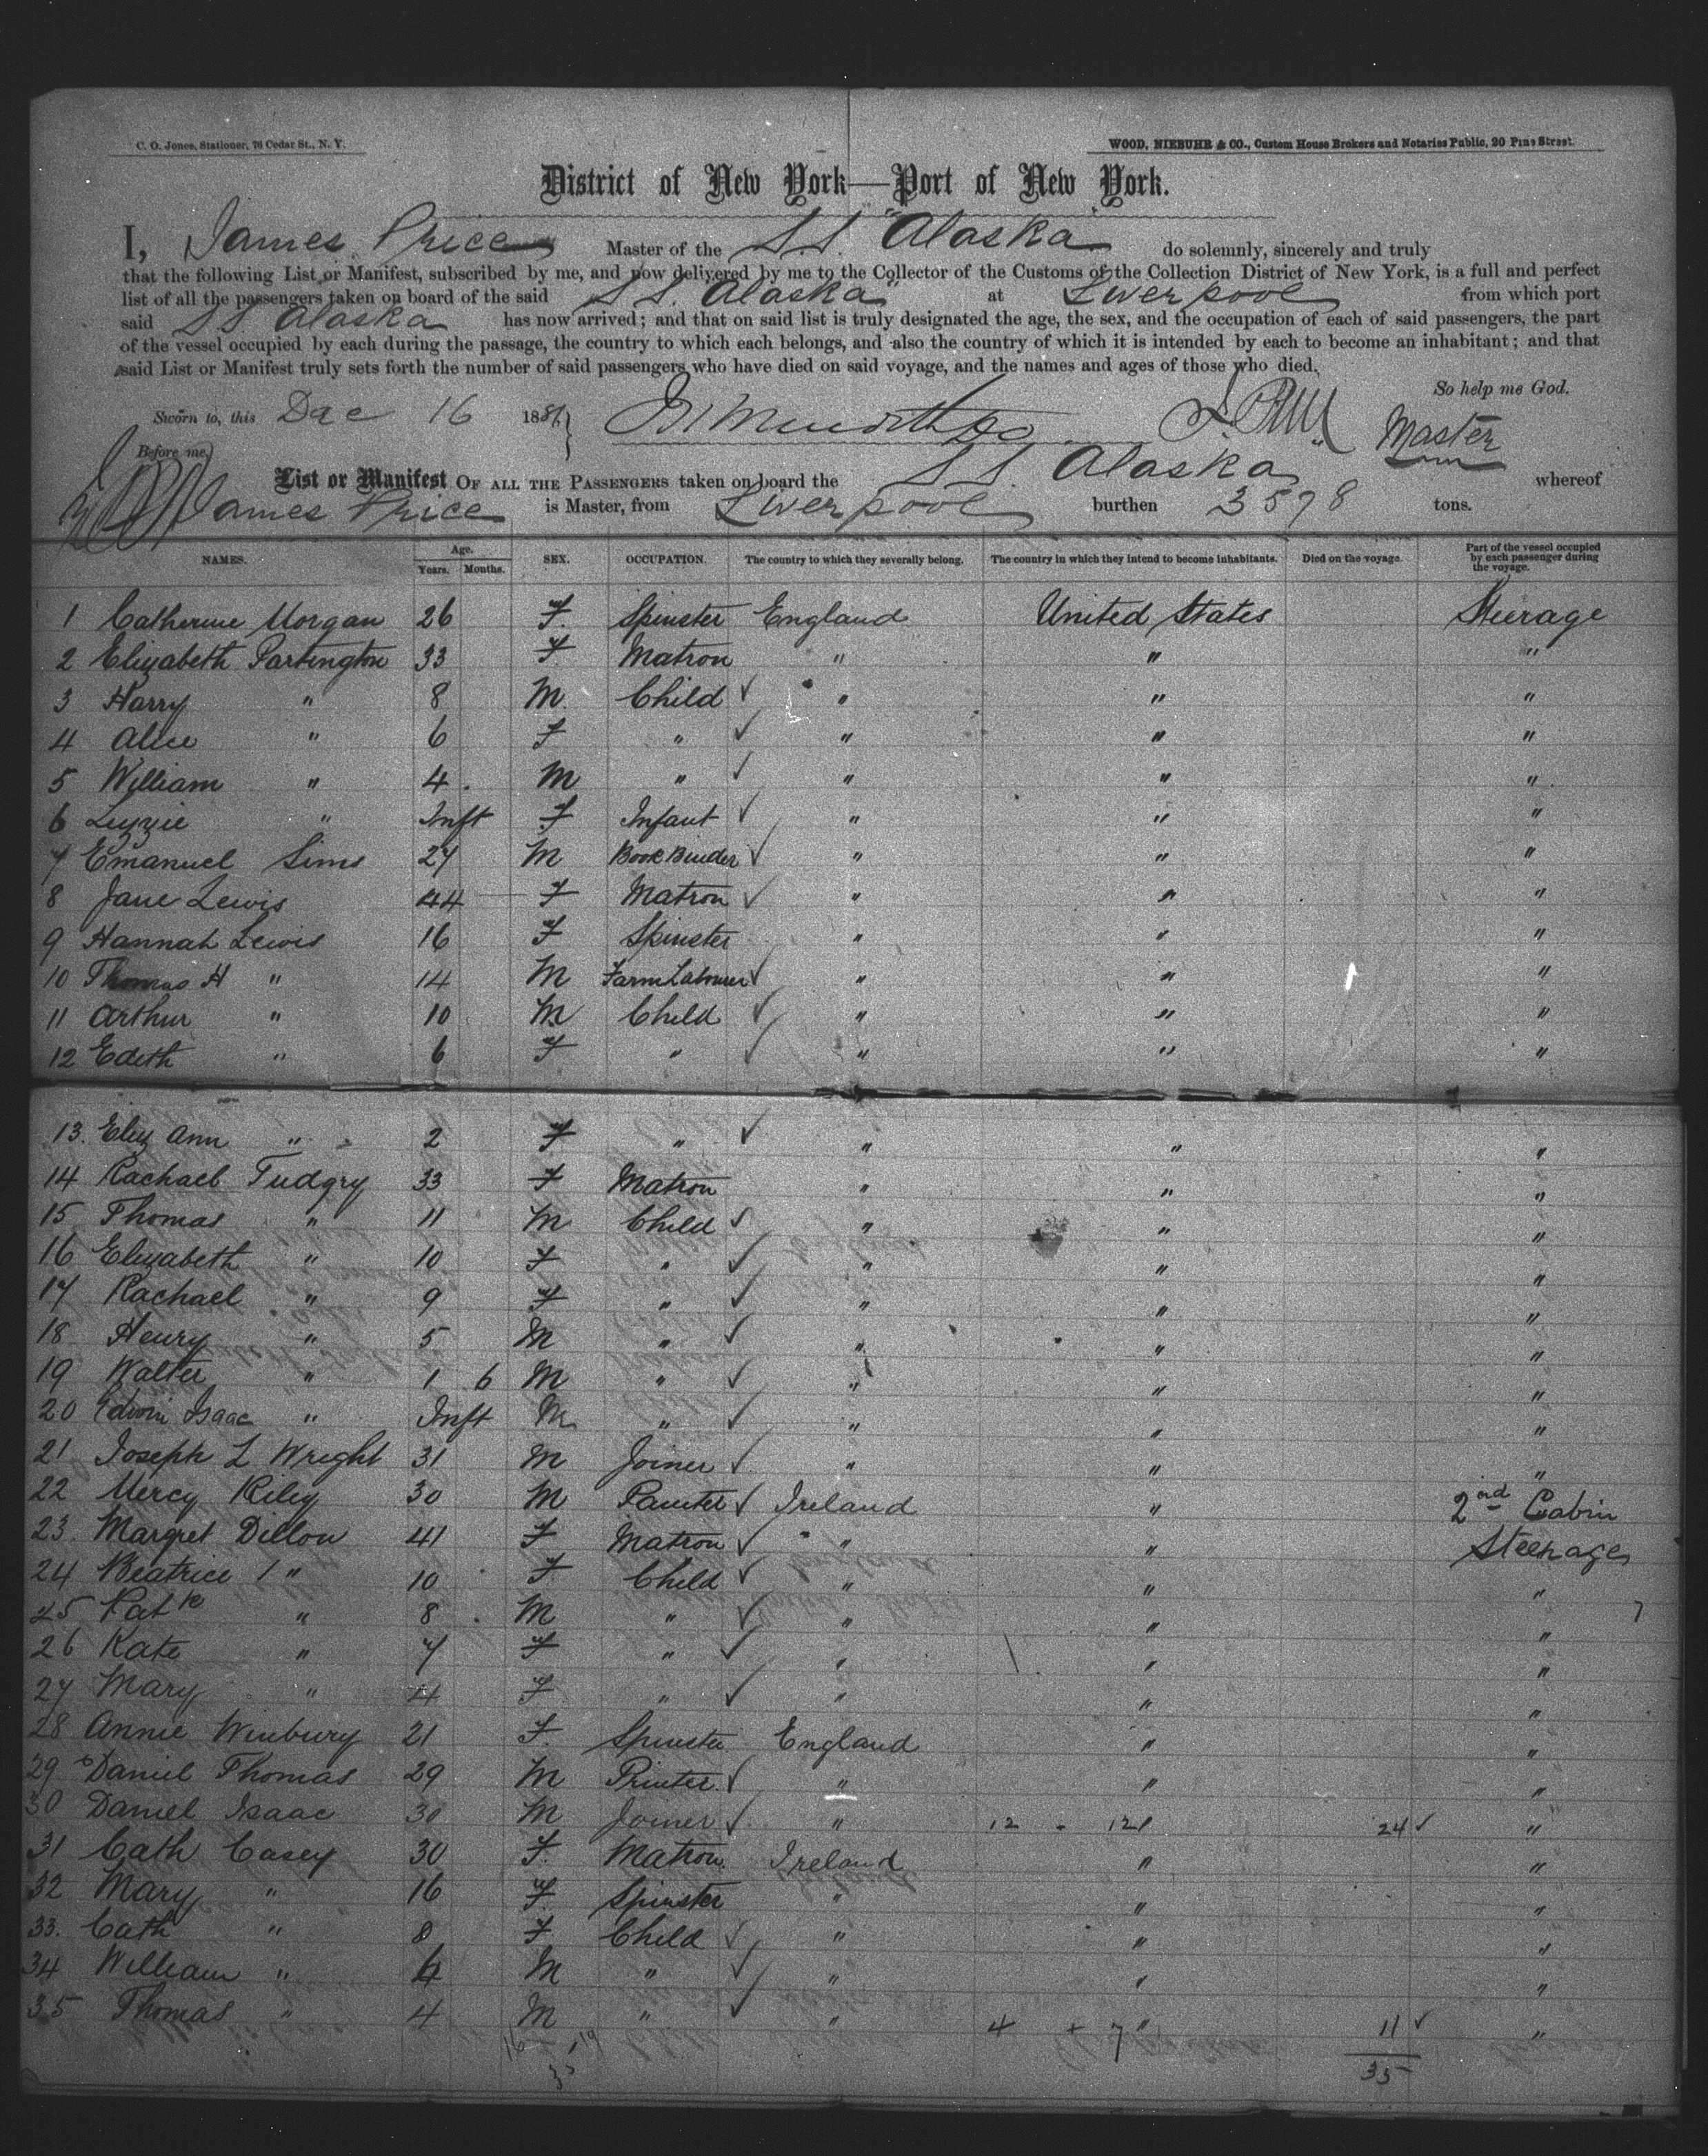 C. O. Jones, Stationer, 76 Cedar St., N. Y.
WOOD, NIEBUHR & CO., Custom House Brokers and Notaries Public, 20 Pine Street.
District of New York—Port of New York.
I, James Price Master of the S.S. "Alaska" do solemnly, sincerely and truly
that the following List or Manifest, subscribed by me, and now delivered by me to the Collector of the Customs of the Collection District of New York, is a full and perfect
list of all the passengers taken on board of the said S.S. "Alaska" at Liverpool from which port
said S.S. Alaska has now arrived; and that on said list is truly designated the age, the sex, and the occupation of each of said passengers, the part
of the vessel occupied by each during the passage, the country to which each belongs, and also the country of which it is intended by each to become an inhabitant; and that
said List or Manifest truly sets forth the number of said passengers who have died on said voyage, and the names and ages of those who died.
So help me God.
Sworn to, this Dec 16 188
Master
Before me,
List or Manifest OF ALL THE PASSENGERS taken on board the S.S. Alaska whereof
James Price is Master, from Liverpool burthen 3578 tons.
NAMES. Age. Years. Months. SEX. OCCUPATION. The country to which they severally belong. The country in which they intend to become inhabitants. Died on the voyage. Part of the vessel occupied by each passenger during the voyage.
1 Catherine Morgan 26 F. Spinster England United States Steerage
2 Elizabeth Partington 33 F Matron " " "
3 Harry " 8 M. Child " " "
4 Alice " 6 F " " " "
5 William " 4 M " " " "
6 Lizzie " Inft F Infant " " "
7 Emanuel Sims 27 M Book Binder " " "
8 Jane Lewis 44 F Matron " " "
9 Hannah Lewis 16 F Spinster " " "
10 Thomas H " 14 M Farm Labourer " " "
11 Arthur " 10 M Child " " "
12 Edith " 6 F " " " "
13. Eliz Ann " 2 F " " " "
14 Rachael Tudgry 33 F Matron " " "
15 Thomas " 11 M Child " " "
16 Elizabeth " 10 F " " " "
17 Rachael " 9 F " " " "
18 Henry " 5 M " " " "
19 Walter " 1 6 M " " " "
20 Edwin Isaac " Inft M " " " "
21 Joseph L Wright 31 M Joiner " " "
22 Mercy Riley 30 M Painter Ireland " 2nd Cabin
23. Margret Dillon 41 F Matron " " Steerage
24 Beatrice " 10 F Child " " "
25 Patk " 8 M " " " "
26 Kate " 7 F " " " "
27 Mary " 4 F " " " "
28 Annie Winbury 21 F. Spinster England " "
29 Daniel Thomas 29 M Printer " " "
30 Daniel Isaac 30 M Joiner " 12 - 12 " 24 "
31 Cath Casey 30 F. Matron Ireland " "
32 Mary " 16 F Spinster " " "
33. Cath " 8 F Child " " "
34 William " 6 M " " " "
35 Thomas " 4 M " " 4 + 7 " 11 "
16 19
35
35